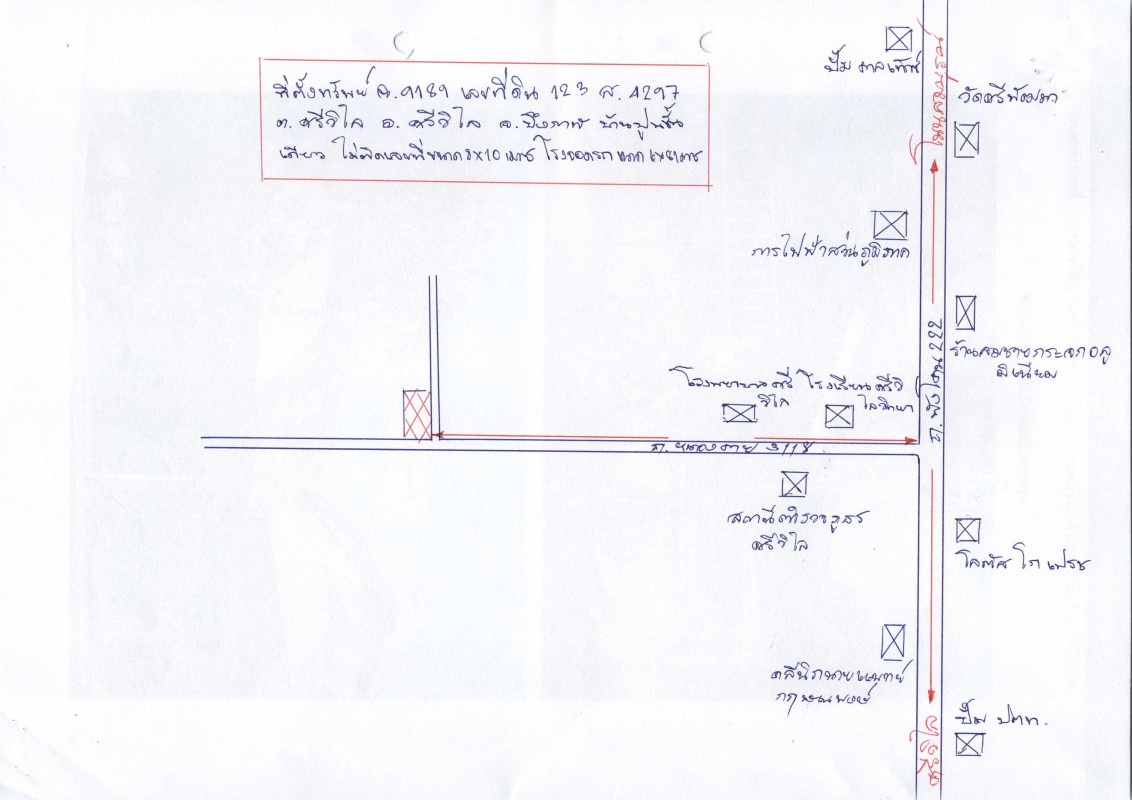 ที่ตั้งทรัพย์ ฉ.9189 เลขที่ดิน 123 ส.4297
ต. ศรีวิไล อ. ศรีวิไล จ.บึงกาฬ บ้านปูนชั้น
เดียว ไม่ติดเลขที่ขนาด 8x10 เมตร โรงจอดรถ ขนาด เมตร
ปั๊ม คาลเท็กซ์
โนนสมบูรณ์
วัดศรีพัฒนา
การไฟฟ้าส่วนภูมิภาค
ร้านสมชายกระจกอลู
มิเนียม
ถ.พังโคน 222
โรงพยาบาลศรี
วิไล
โรงเรียนศรีวิ
ไลวิทยา
ถ. 3118
สถานีตำรวจภูธร
ศรีวิไล
โลตัส โก เฟรช
คลีนิกนายแพทย์
กฤษณพงษ์
ศรีวิไล
ปั๊ม ปตท.